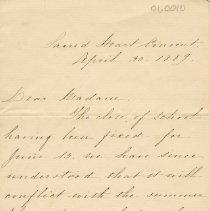 01,0010
Sacred Heart Convent.
April 30. 1889.
Dear Madame,
The close of school
having been fixed for
June 13, we have since
understood that it will
conflict with the summer